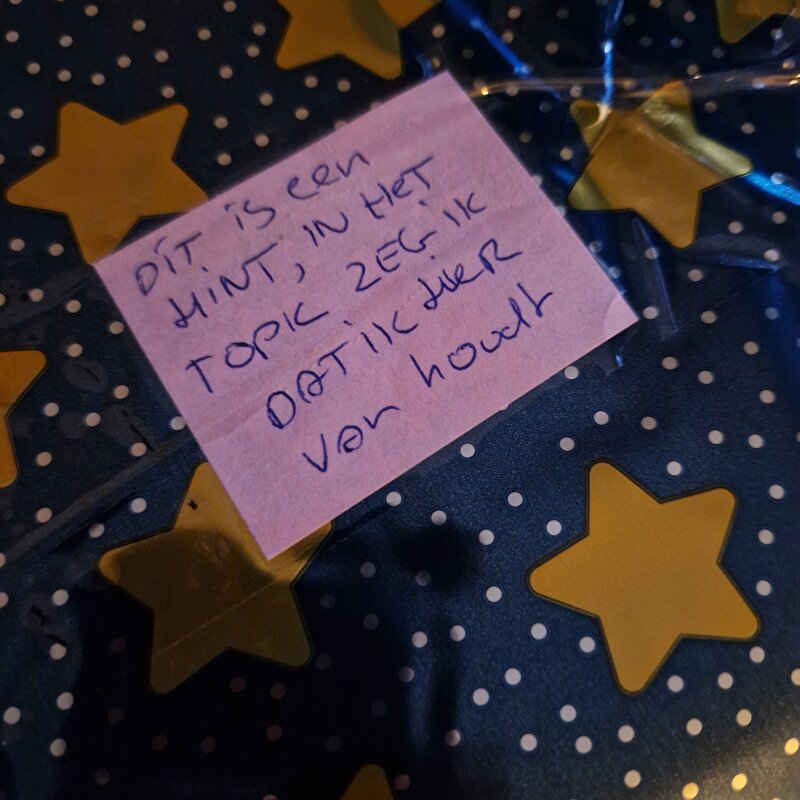 DiT is een
HiNT, IN HeT
TOPIC ZEG IK
DAT IK HIER
VAN houdt